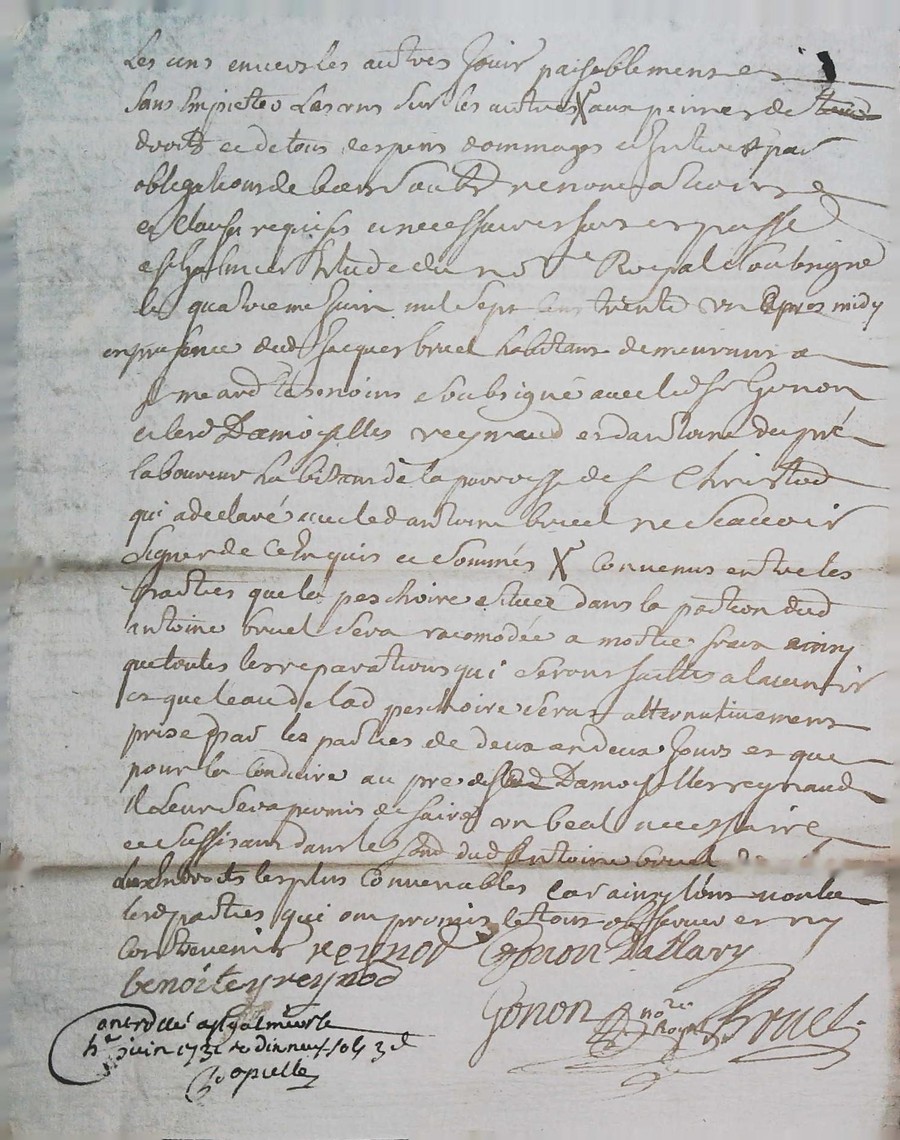 Les uns envers les autres Jouir paisiblement et
sans Impieter Les uns sur les autres X aux peines de tous
droits et de tous despens dommages et Interest par
obligations de biens renonciations
et clauses requises et necessaires fait et passé
a St Galmier Etude du no.re Royal soubsigné
le quatrieme Juin mil sept cens trente un apres midy
en presence dud Jacques bruel habitant demeurant a
St meard tesmoins soubsigné avec led Sr Gonon
et lesd Damoyselles reynaud et dantoine dupré
laboureur habitant de la parroisse de St Christod
qui a declaré avec led antoine bruel ne scavoir
signer de ce Enquis et sommés X Convenus entre les
parties que la peschoire scituee dans la portion dud
antoine bruel sera racomodée a moitie fraix ainsy
que toutes les reparations qui seront faittes a lavenir
et que leau de lad peschoire sera alternativement
prise par les parties de deux en deux Jours et que
pour la conduire au pre desd Damoyselles reynaud
Il leur sera permis de faire un beal necessaire
et suffisant dans le fond dud Antoine bruel
Les Endroits les plus Convenables car ainsy lont voulu
lesd parties qui ont promis le tout observer et ny
contrevenir reynod Gonon Dallary
benoitey reynod
Gonon no.re Royal Bruel
controllé a St galmier le
juin 1731 r dix neuf sols 3 d